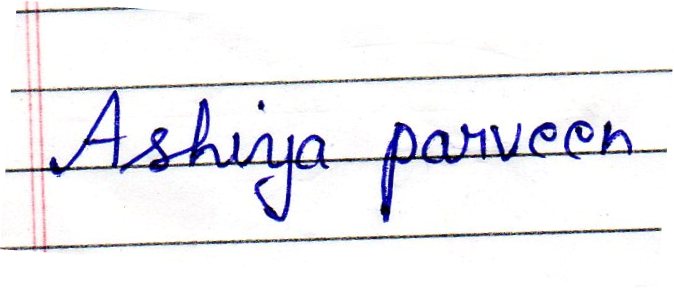 Ashiya parveen